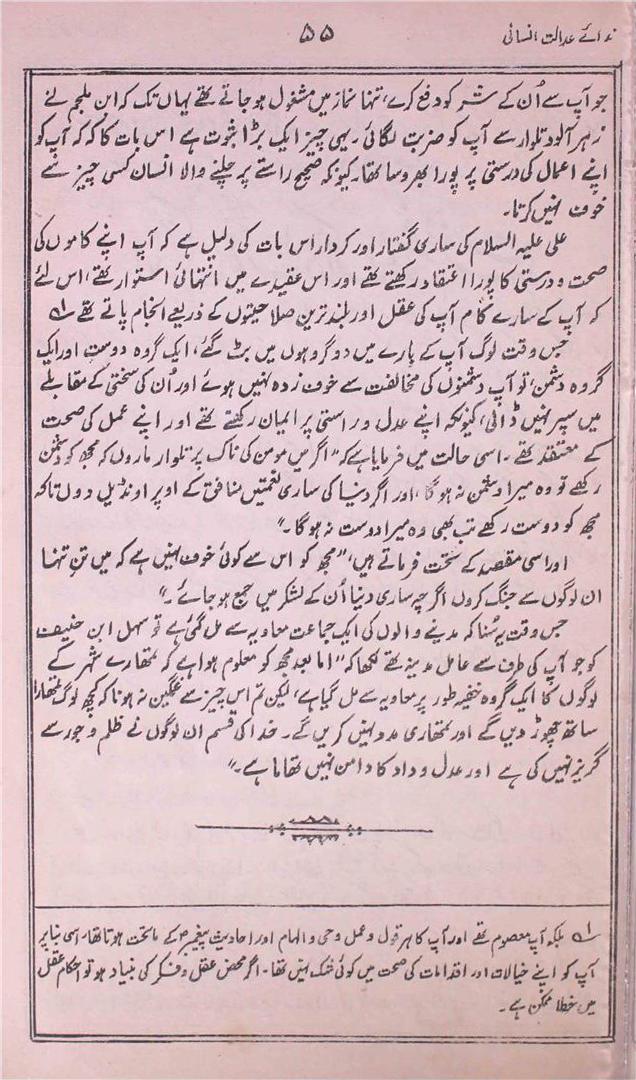 ندائے عدالت انسانی
۵۵
جو آپ سے اُن کے شر کو دفع کرے، تنہا نماز میں مشغول ہو جاتے تھے یہاں تک کہ ابن ملجم نے
زہر آلود تلوار سے آپ کو ضربت لگائی۔ یہی چیز ایک بڑا ثبوت ہے اس بات کا کہ آپ کو
اپنے اعمال کی درستی پر پورا بھروسا تھا، کیونکہ صحیح راستے پر چلنے والا انسان کسی چیز سے
خوف نہیں کرتا۔
علی علیہ السلام کی ساری گفتار اور کردار اس بات کی دلیل ہے کہ آپ اپنے کاموں کی
صحت و درستی کا پورا اعتقاد رکھتے تھے اور اس عقیدے میں انتہائی استوار تھے، اس لئے
کہ آپ کے سارے کام آپ کی عقل اور بلند ترین صلاحیتوں کے ذریعے انجام پاتے تھے ؎۱
جس وقت لوگ آپ کے بارے میں دو گروہوں میں بٹ گئے، ایک گروہ دوست اور ایک
گروہ دشمن، تو آپ دشمنوں کی مخالفت سے خوف زدہ نہیں ہوئے اور اُن کی سختی کے مقابلے
میں سپر نہیں ڈالی، کیونکہ اپنے عدل و راستی پر ایمان رکھتے تھے اور اپنے عمل کی صحت
کے معتقد تھے۔ اسی حالت میں فرمایا ہے کہ "اگر میں مومن کی ناک پر تلوار ماروں کہ مجھ کو دشمن
رکھے تو وہ میرا دشمن نہ ہو گا، اور اگر دنیا کی ساری نعمتیں منافق کے اوپر اونڈیل دوں تاکہ
مجھ کو دوست رکھے تب بھی وہ میرا دوست نہ ہو گا۔"
اور اسی مقصد کے تحت فرماتے ہیں، "مجھ کو اس سے کوئی خوف نہیں ہے کہ میں تن تنہا
ان لوگوں سے جنگ کروں اگرچہ ساری دنیا اُن کے لشکر میں جمع ہو جائے۔"
جس وقت یہ سُنا کہ مدینے والوں کی ایک جماعت معاویہ سے مل گئی ہے تو سہل ابن حنیف
کو جو آپ کی طرف سے عامل مدینہ تھے لکھا کہ "اما بعد مجھ کو معلوم ہوا ہے کہ تمھارے شہر کے
لوگوں کا ایک گروہ خفیہ طور پر معاویہ سے مل گیا ہے، لیکن تم اس چیز سے غمگین نہ ہونا کہ کچھ لوگ تمھارا
ساتھ چھوڑ دیں گے اور تمھاری مدد نہیں کریں گے۔ خدا کی قسم ان لوگوں نے ظلم و جور سے
گریز نہیں کی ہے اور عدل و داد کا دامن نہیں تھاما ہے۔"
؎۱ بلکہ آپ معصوم تھے اور آپ کا ہر قول و عمل وحی و الہام اور احادیث پیغمبرؐ کے ماتحت ہوتا تھا۔ اسی بنا پر
آپ کو اپنے خیالات اور اقدامات کی صحت میں کوئی شک نہیں تھا۔ اگر محض عقل و فکر کی بنیاد ہو تو احکام عقل
میں خطا ممکن ہے۔